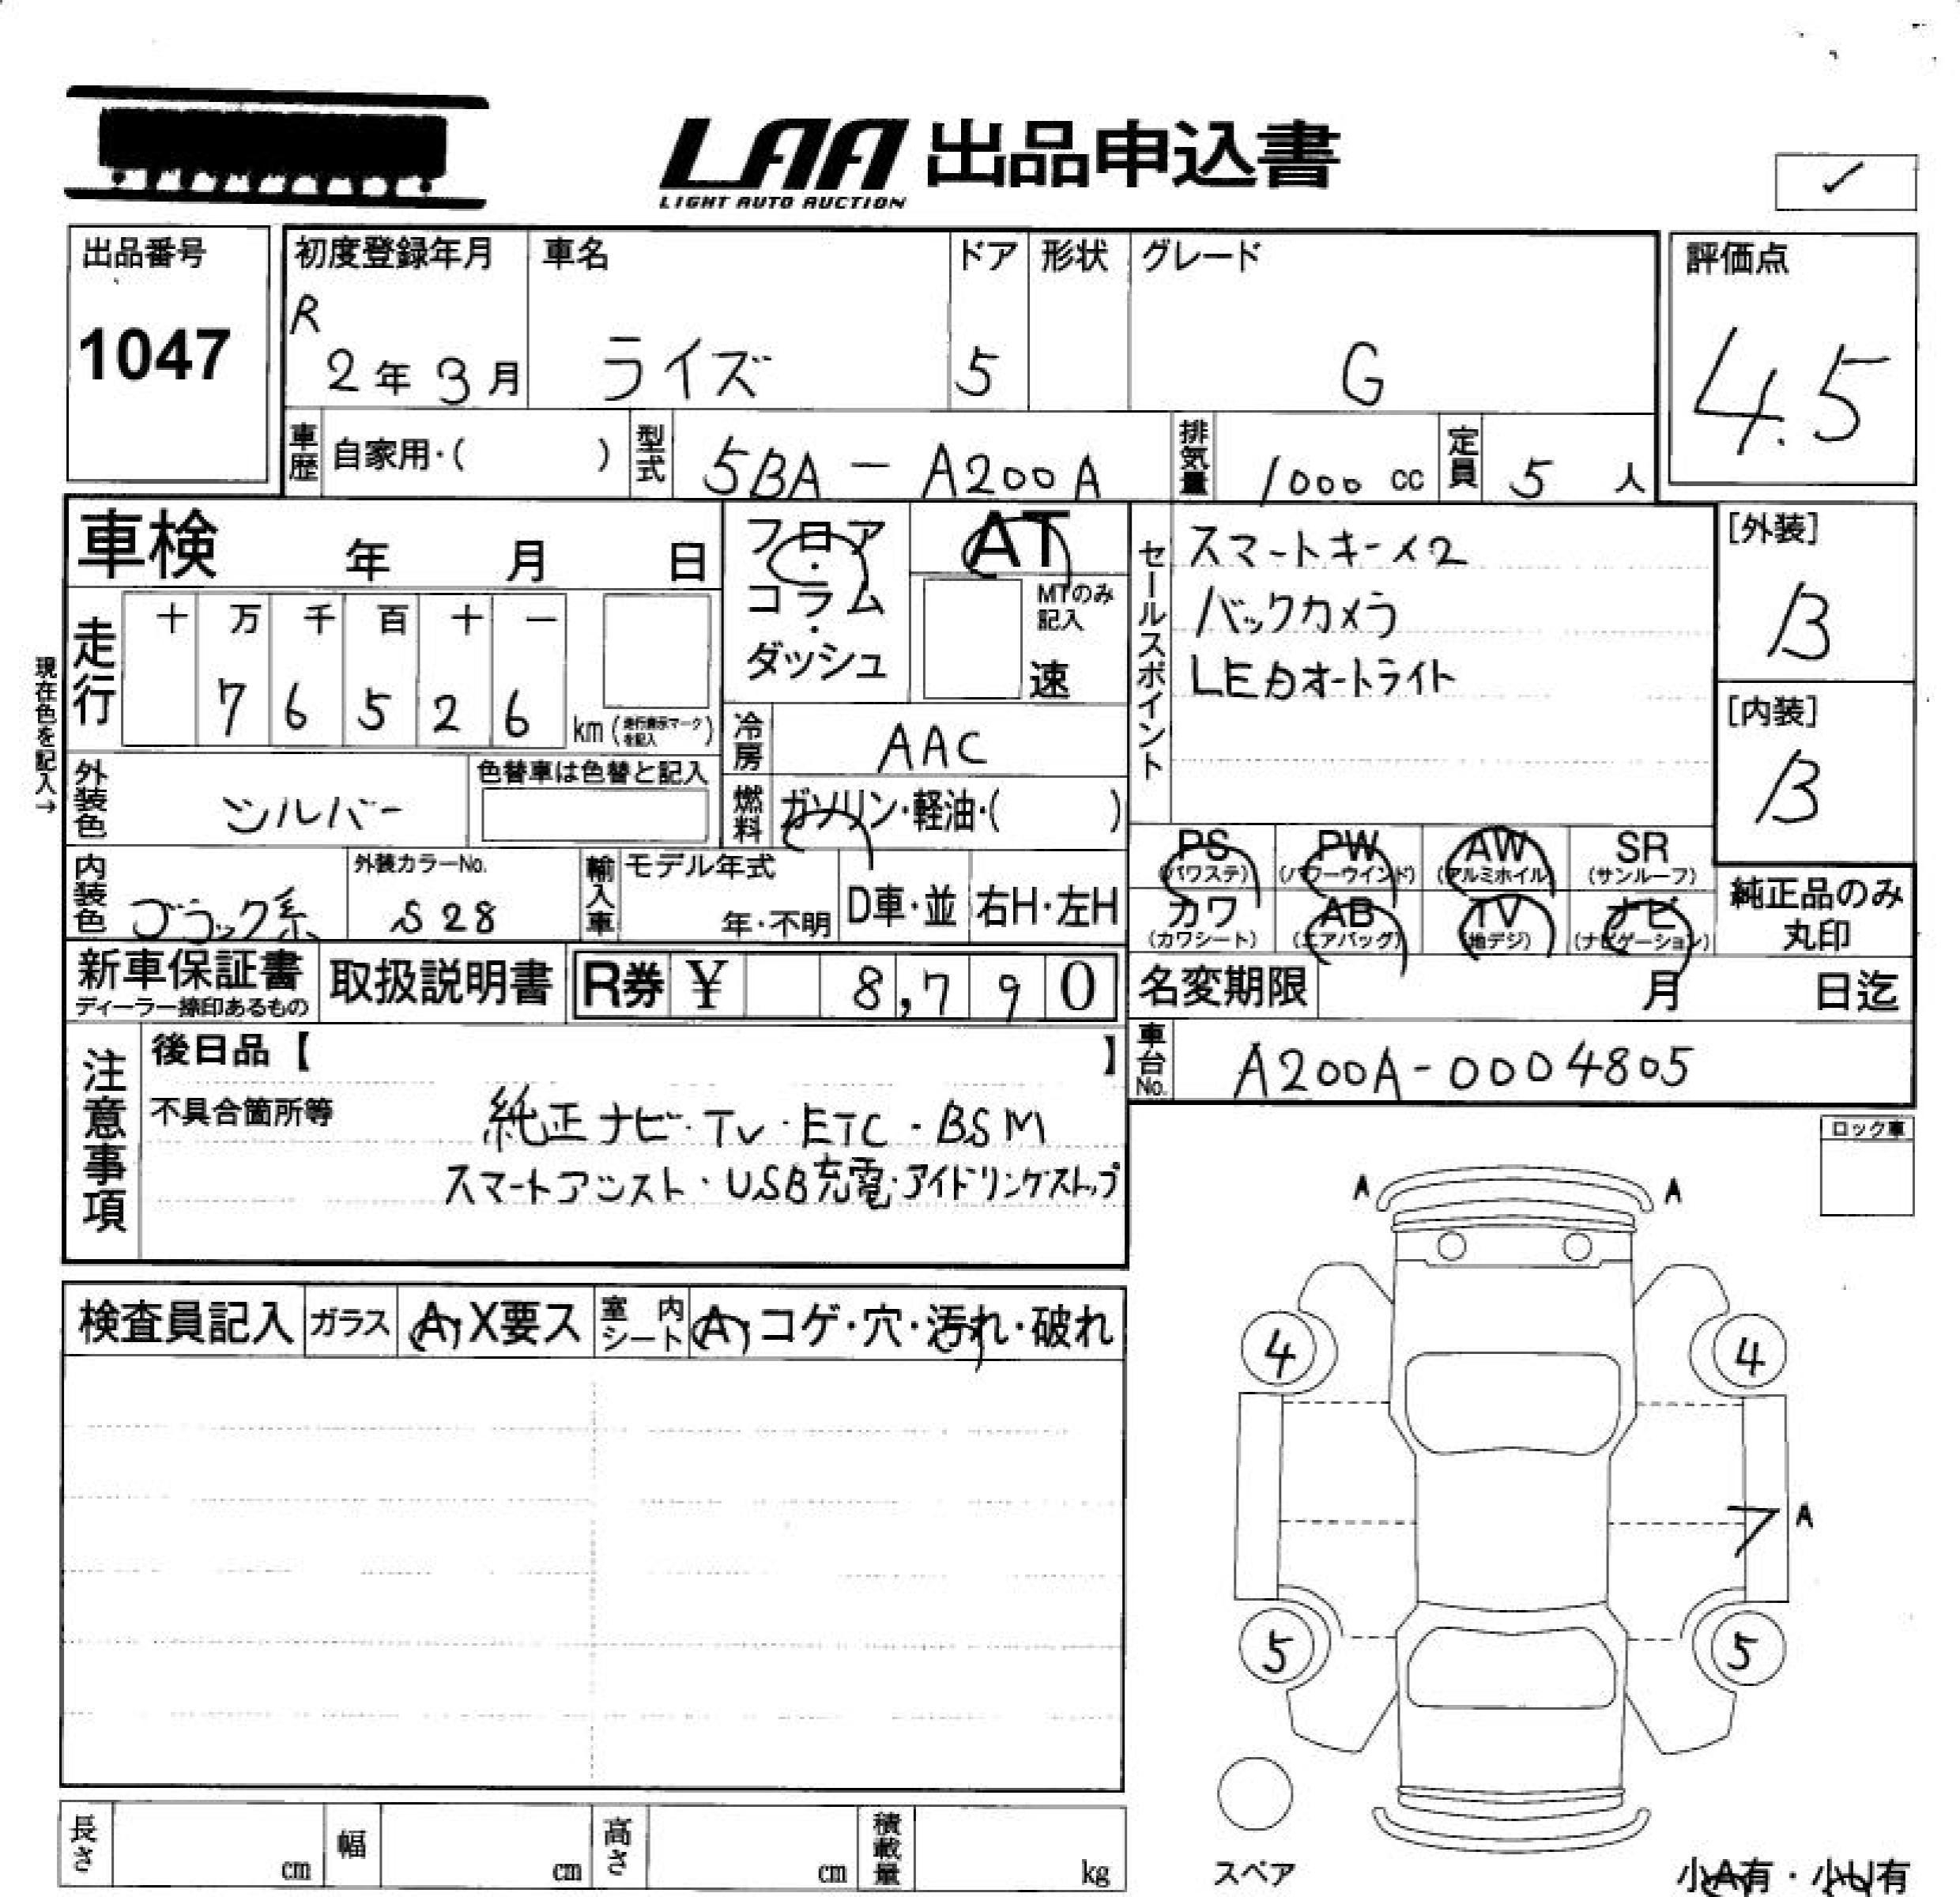 LAA 出品申込書
LIGHT AUTO AUCTION
✓
出品番号
1047
初度登録年月
R
2年3月
車名
ライズ
ドア
5
形状
グレード
G
評価点
4.5
車歴 自家用・( )
型式 5BA - A200A
排気量 1000 cc
定員 5 人
車検 年 月 日
フロア・コラム・ダッシュ
AT
MTのみ記入
速
セールスポイント
スマートキー×2
バックカメラ
LEDオートライト
[外装]
B
[内装]
B
現在色を記入→
走行
十 万 千 百 十 一
7 6 5 2 6
km (走行表示マークを記入)
冷房 AAC
燃料 ガソリン・軽油・( )
外装色 シルバー
色替車は色替と記入
内装色 ブラック系
外装カラーNo.
S28
輸入車 モデル年式
年・不明
D車・並
右H・左H
PS (パワステ)
PW (パワーウインド)
AW (アルミホイル)
SR (サンルーフ)
カワ (カワシート)
AB (エアバッグ)
TV (地デジ)
ナビ (ナビゲーション)
純正品のみ丸印
新車保証書
ディーラー捺印あるもの
取扱説明書
R券 ¥ 8,790
名変期限 月 日迄
車台No. A200A-0004805
注意事項
後日品【 】
不具合箇所等
純正ナビ・TV・ETC・BSM
スマートアシスト・USB充電・アイドリングストップ
ロック車
検査員記入
ガラス A・X要ス
室内シート A・コゲ・穴・汚れ・破れ
A A
4 4
ア A
5 5
スペア
小A有・小U有
長さ cm
幅 cm
高さ cm
積載量 kg